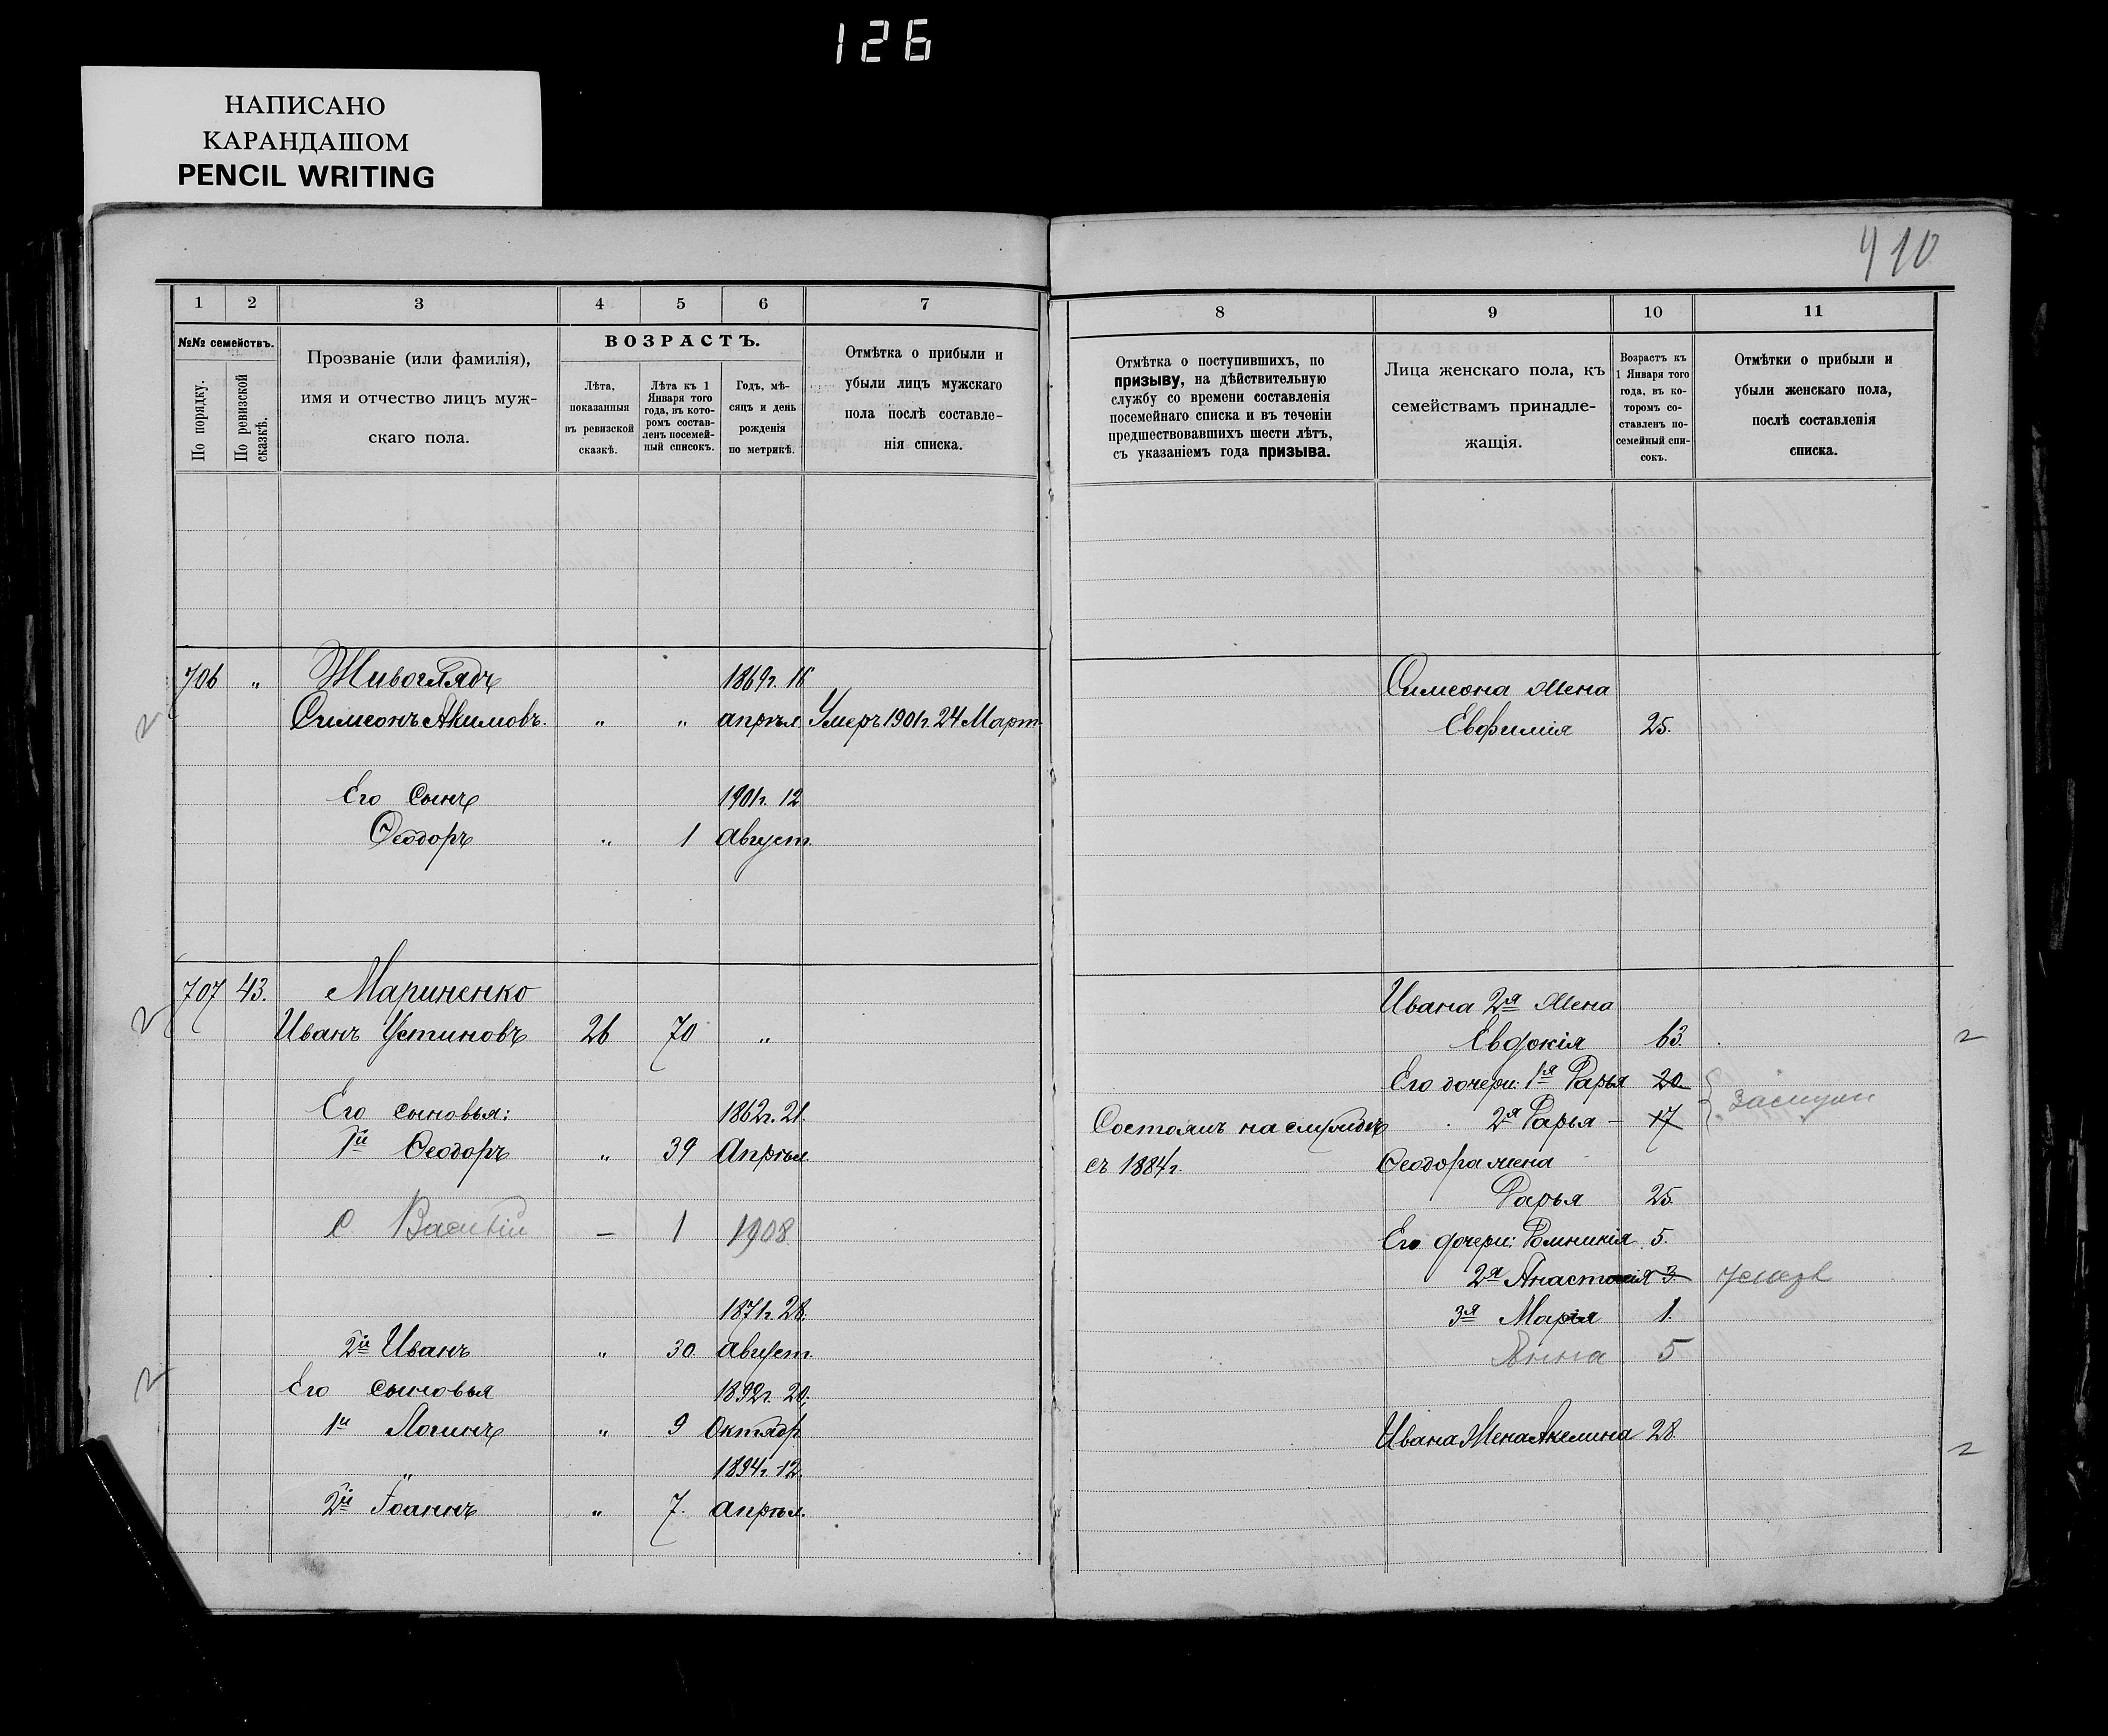 126
НАПИСАНО
КАРАНДАШОМ
PENCIL WRITING
410
1 2 3 4 5 6 7
№№ семействъ.
По порядку.
По ревизской сказкѣ.
Прозваніе (или фамилія),
имя и отчество лицъ муж-
скаго пола.
ВОЗРАСТЪ.
Лѣта,
показанныя
въ ревизской
сказкѣ.
Лѣта къ 1
Января того
года, въ кото-
ромъ состав-
ленъ посемей-
ный списокъ.
Годъ, мѣ-
сяцъ и день
рожденія
по метрикѣ.
Отмѣтка о прибыли и
убыли лицъ мужскаго
пола послѣ составле-
нія списка.
706 „ Живоглядъ 1869г. 16
Симеонъ Акимовъ. „ „ апрѣл. Умеръ 1901г. 24 Март.
Его Сынъ 1901г. 12
Ѳеодоръ „ 1 Август.
707 43. Мариненко
Иванъ Устиновъ 26 70 „
Его сыновья: 1862г. 21.
1й Ѳеодоръ „ 39 Апрѣл.
С. Василій — 1 1908
1871г. 28.
2й Иванъ „ 30 Август.
Его сыновья 1892г. 20.
1й Логинъ „ 9 Октябр
1894г. 12.
2й Іоаннъ „ 7. апрѣл.
8 9 10 11
Отмѣтка о поступившихъ, по
призыву, на дѣйствительную
службу со времени составленія
посемейнаго списка и въ теченіи
предшествовавшихъ шести лѣтъ,
съ указаніемъ года призыва.
Лица женскаго пола, къ
семействамъ принадле-
жащія.
Возрастъ къ
1 Января того
года, въ ко-
торомъ со-
ставленъ по-
семейный спи-
сокъ.
Отмѣтки о прибыли и
убыли женскаго пола,
послѣ составленія
списка.
Симеона жена
Евфимія 25.
Ивана 2я жена
Евдокія 63.
Его дочери: 1я Дарья 20
Состоитъ на службѣ 2я Дарья — 17
съ 1884г. Ѳеодора жена
Дарья 25.
Его дочери: Домникія 5.
2я Анастасія 3
3я Марія 1.
Анна 5
Ивана Жена Акелина 28.